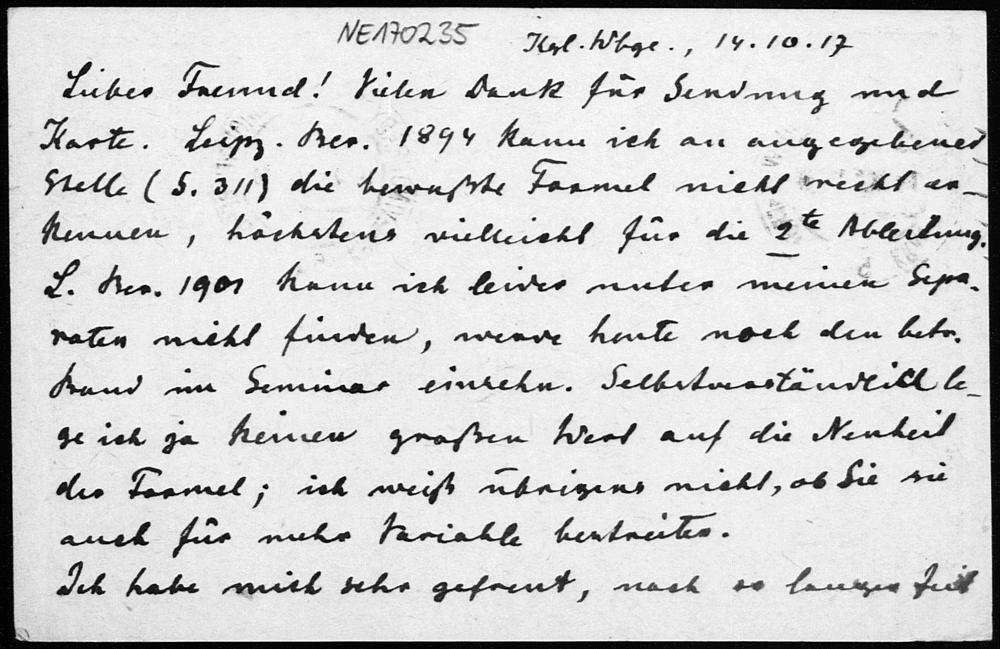 NE170235
Kgl. Wbge., 14.10.17
Lieber Freund! Vielen Dank für Sendung und
Karte. Leipz. Ber. 1894 kann ich an angegebener
Stelle (S. 311) die bewußte Formel nicht recht er-
kennen, höchstens vielleicht für die 2te Ableitung.
L. Ber. 1901 kann ich leider unter meinen Sepa-
raten nicht finden, werde heute noch den betr.
Band im Seminar einsehn. Selbstverständlich le-
ge ich ja keinen großen Wert auf die Neuheit
der Formel; ich weiß übrigens nicht, ob Sie sie
auch für mehr Variable bestreiten.
Ich habe mich sehr gefreut, nach so langer Zeit